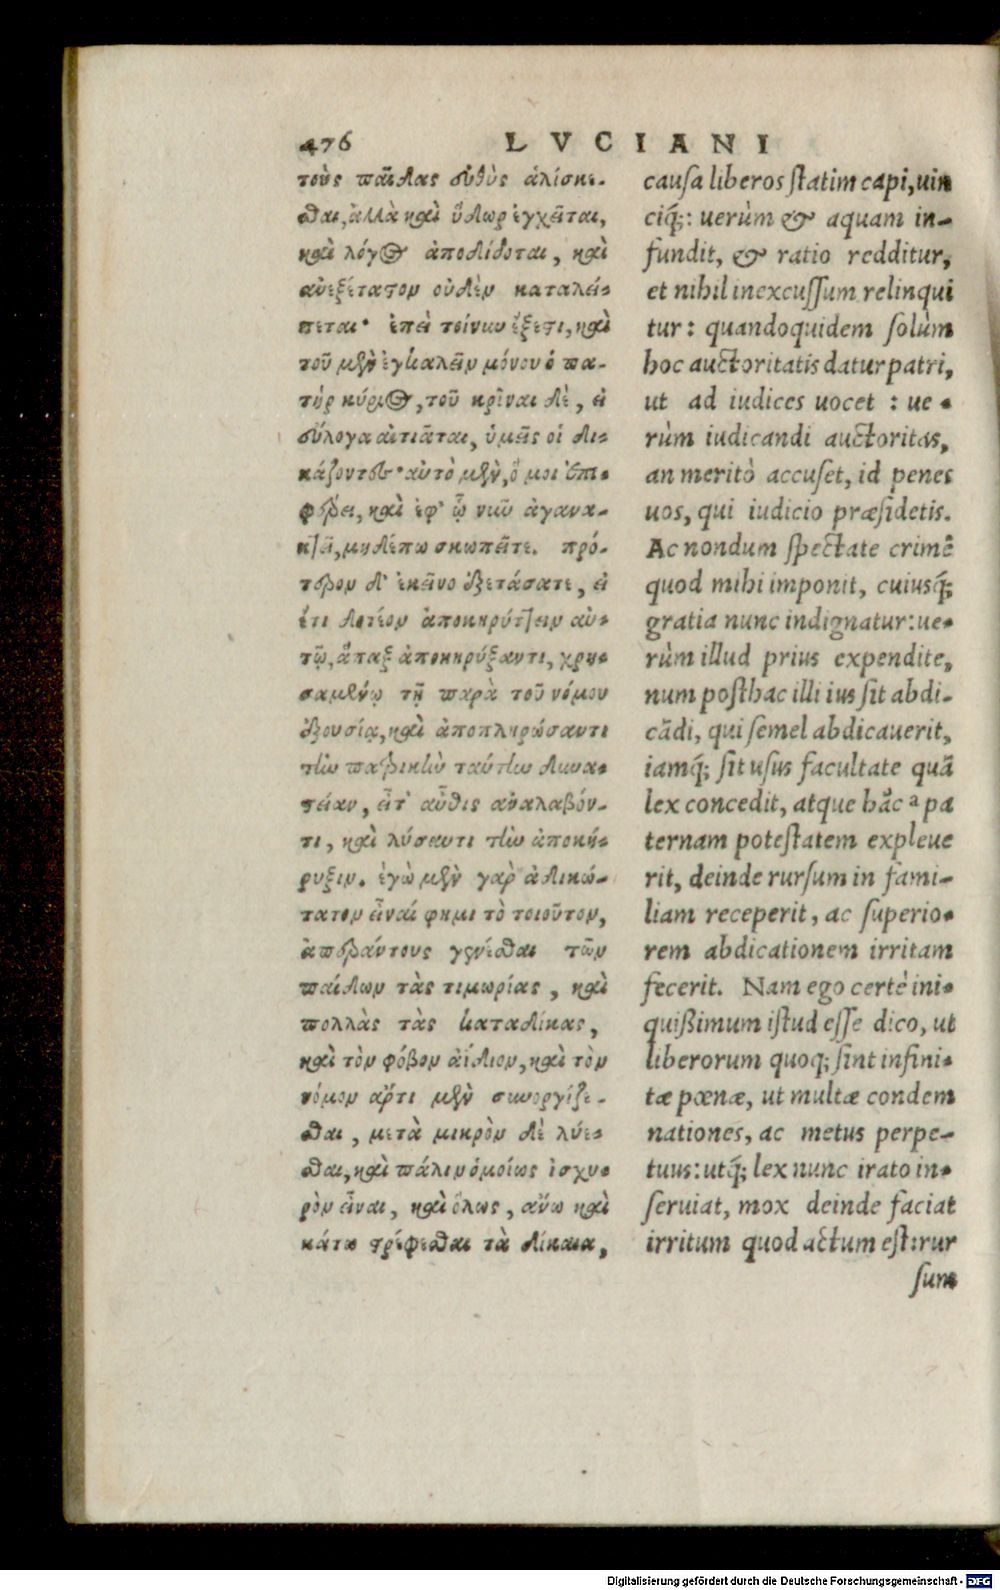 476 LVCIANI
τοὺς παῖδας εὐθὺς ἁλίσκε-
σθαι, ἀλλὰ καὶ ὕδωρ ἐγχεῖται,
καὶ λόγος ἀποδίδοται, καὶ
ἀνεξέταστον οὐδὲν καταλεί-
πεται· ἐπεὶ τοίνυν ἔξεστι, καὶ
τοῦ μὲν ἐγκαλεῖν μόνου ὁ πα-
τὴρ κύριος, τοῦ κρῖναι δὲ, εἰ
εὔλογα αἰτιᾶται, ὑμεῖς οἱ δι-
κάζοντες· αὐτὸ μὲν, ὅ μοι ἐπι-
φέρει, καὶ ἐφ' ᾧ νῦν ἀγανα-
κτεῖ, μηδέπω σκωπεῖτε. πρό-
τερον δ' ἐκεῖνο ἐξετάσατε, εἰ
ἔτι δοτέον ἀποκηρύττειν αὐ-
τῷ, ἅπαξ ἀποκηρύξαντι, χρη-
σαμένῳ τῇ παρὰ τοῦ νόμου
ἐξουσίᾳ, καὶ ἀποπληρώσαντι
τὴν πατρικὴν ταύτην δυνα-
στείαν, εἶτ' αὖθις ἀναλαβόν-
τι, καὶ λύσαντι τὴν ἀποκή-
ρυξιν. ἐγὼ μὲν γὰρ ἀδικώ-
τατον εἶναί φημι τὸ τοιοῦτον,
ἀπεράντους γενέσθαι τῶν
παίδων τὰς τιμωρίας, καὶ
πολλὰς τὰς καταδίκας,
καὶ τὸν φόβον ἀΐδιον, καὶ τὸν
νόμον ἄρτι μὲν συνοργίζε-
σθαι, μετὰ μικρὸν δὲ λύε-
σθαι, καὶ πάλιν ὁμοίως ἰσχυ-
ρὸν εἶναι, καὶ ὅλως, ἄνω καὶ
κάτω στρέφεσθαι τὰ δίκαια,
causa liberos statim capi, uin
ciq́;: uerùm & aquam in-
fundit, & ratio redditur,
et nihil inexcussum relinqui
tur: quandoquidem solùm
hoc auctoritatis datur patri,
ut ad iudices uocet: ue-
rùm iudicandi auctoritas,
an meritò accuset, id penes
uos, qui iudicio præsidetis.
Ac nondum spectate crimẽ
quod mihi imponit, cuiusq́;
gratia nunc indignatur: ue-
rùm illud prius expendite,
num posthac illi ius sit abdi-
cãdi, qui semel abdicauerit,
iamq́; sit usus facultate quã
lex concedit, atque hãc a pa
ternam potestatem expleue
rit, deinde rursum in fami-
liam receperit, ac superio-
rem abdicationem irritam
fecerit. Nam ego certè ini-
quißimum istud esse dico, ut
liberorum quoq; sint infini-
tæ pœnæ, ut multæ condem
nationes, ac metus perpe-
tuus: utq́; lex nunc irato in-
seruiat, mox deinde faciat
irritum quod actum est: rur
sum
Digitalisierung gefördert durch die Deutsche Forschungsgemeinschaft - DFG